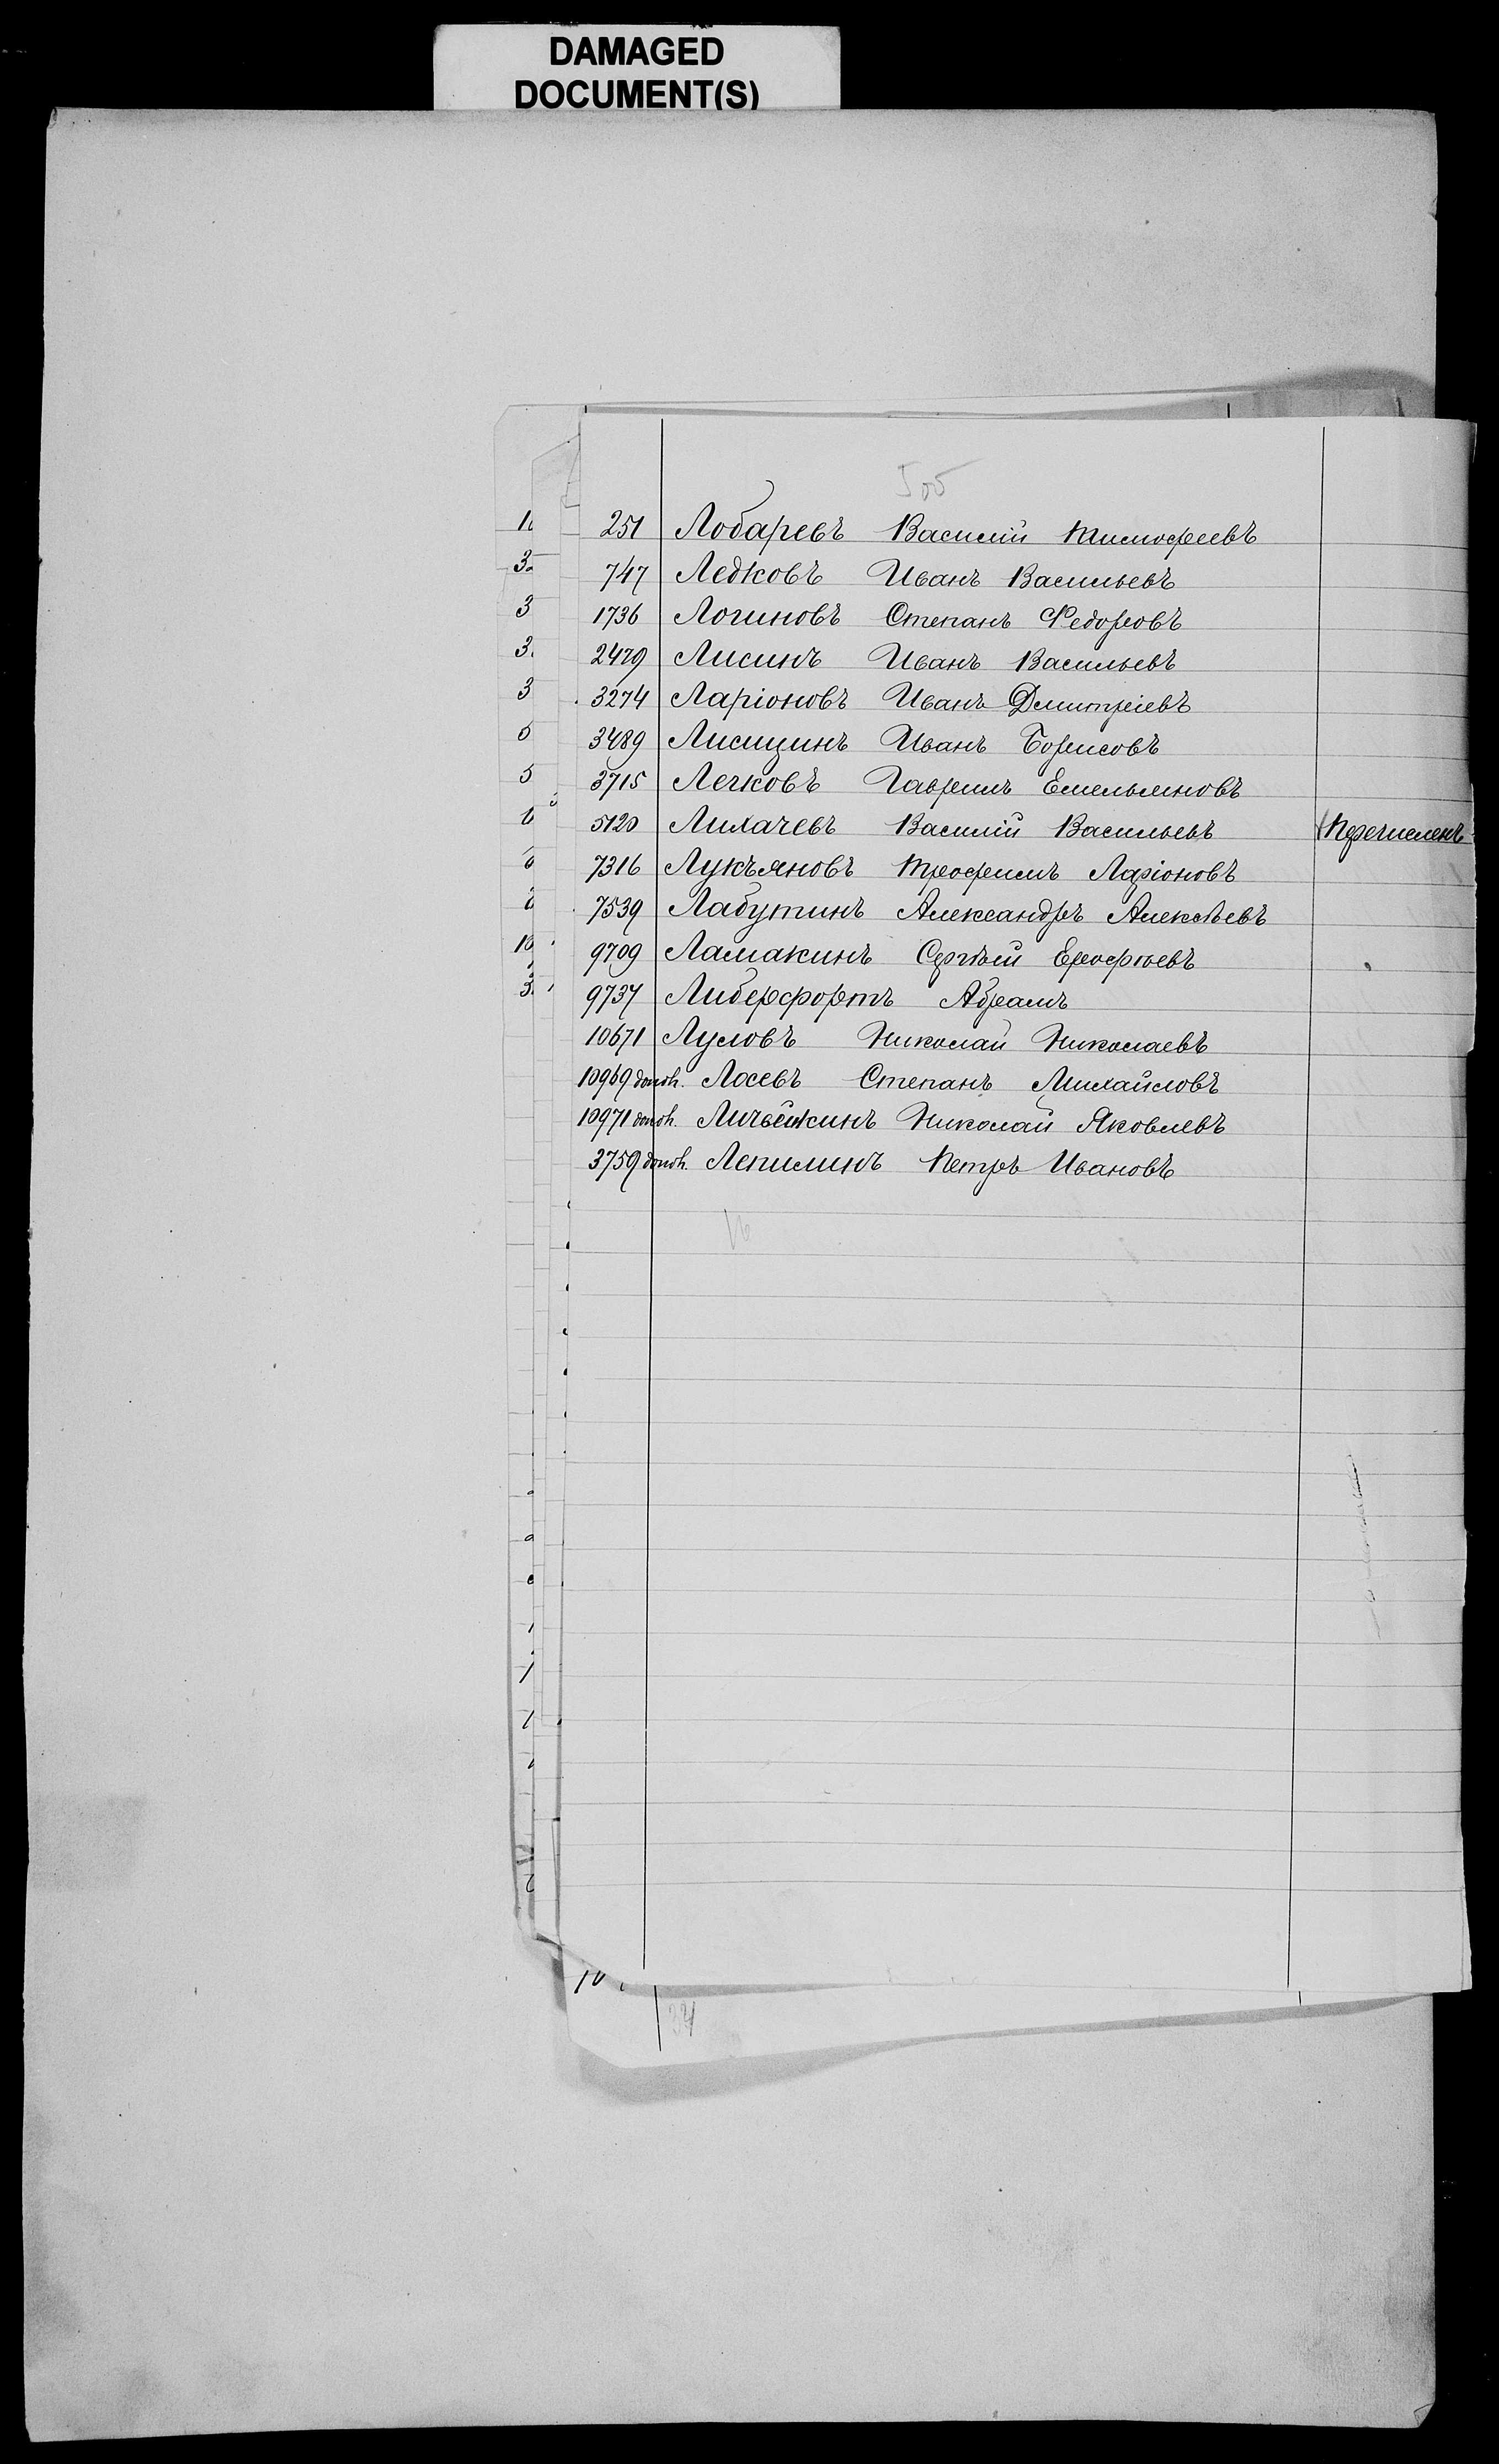 DAMAGED
DOCUMENT(S)
251 Лобаревъ Василій Тимофеевъ
747 Ледковъ Иванъ Васильевъ
1736 Логиновъ Степанъ Федоровъ
2479 Лисинъ Иванъ Васильевъ
3274 Ларіоновъ Иванъ Дмитріевъ
3489 Лисицинъ Иванъ Борисовъ
3715 Легковъ Гаврилъ Емельяновъ
5120 Лихачевъ Василій Васильевъ Перечисленъ
7316 Лукъяновъ Трофимъ Ларіоновъ
7539 Лабутинъ Александръ Алексѣевъ
9709 Ламакинъ Сергѣй Ерофѣевъ
9737 Либерфортъ Абрамъ
10671 Луловъ Николай Николаевъ
10969 допол. Лосевъ Степанъ Михайловъ
10971 допол. Николай Яковлевъ
3759 допол. Лепилинъ Петръ Ивановъ
16
34